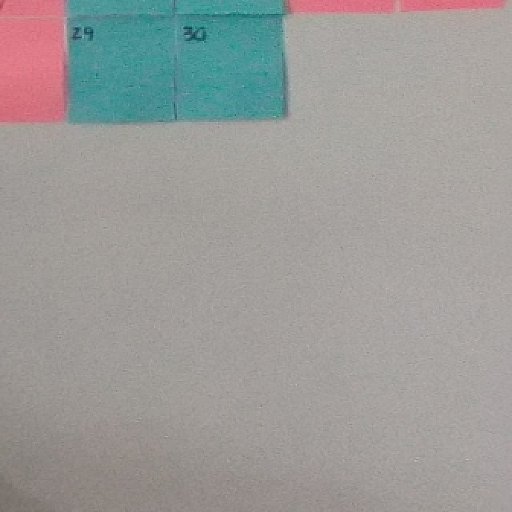 29
30